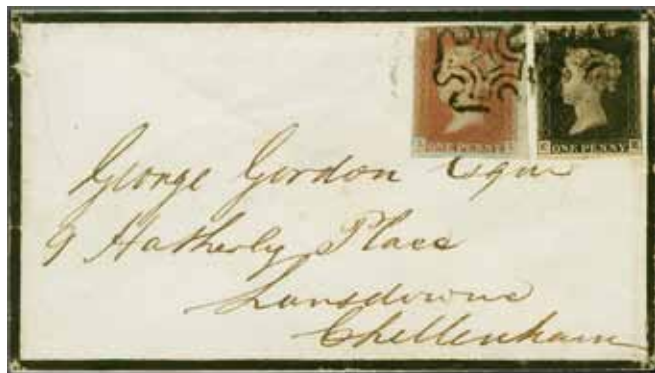 ONE PENNY ONE PENNY
George Gordon Esqre
9 Hatherly Place
Lansdowne
Cheltenham